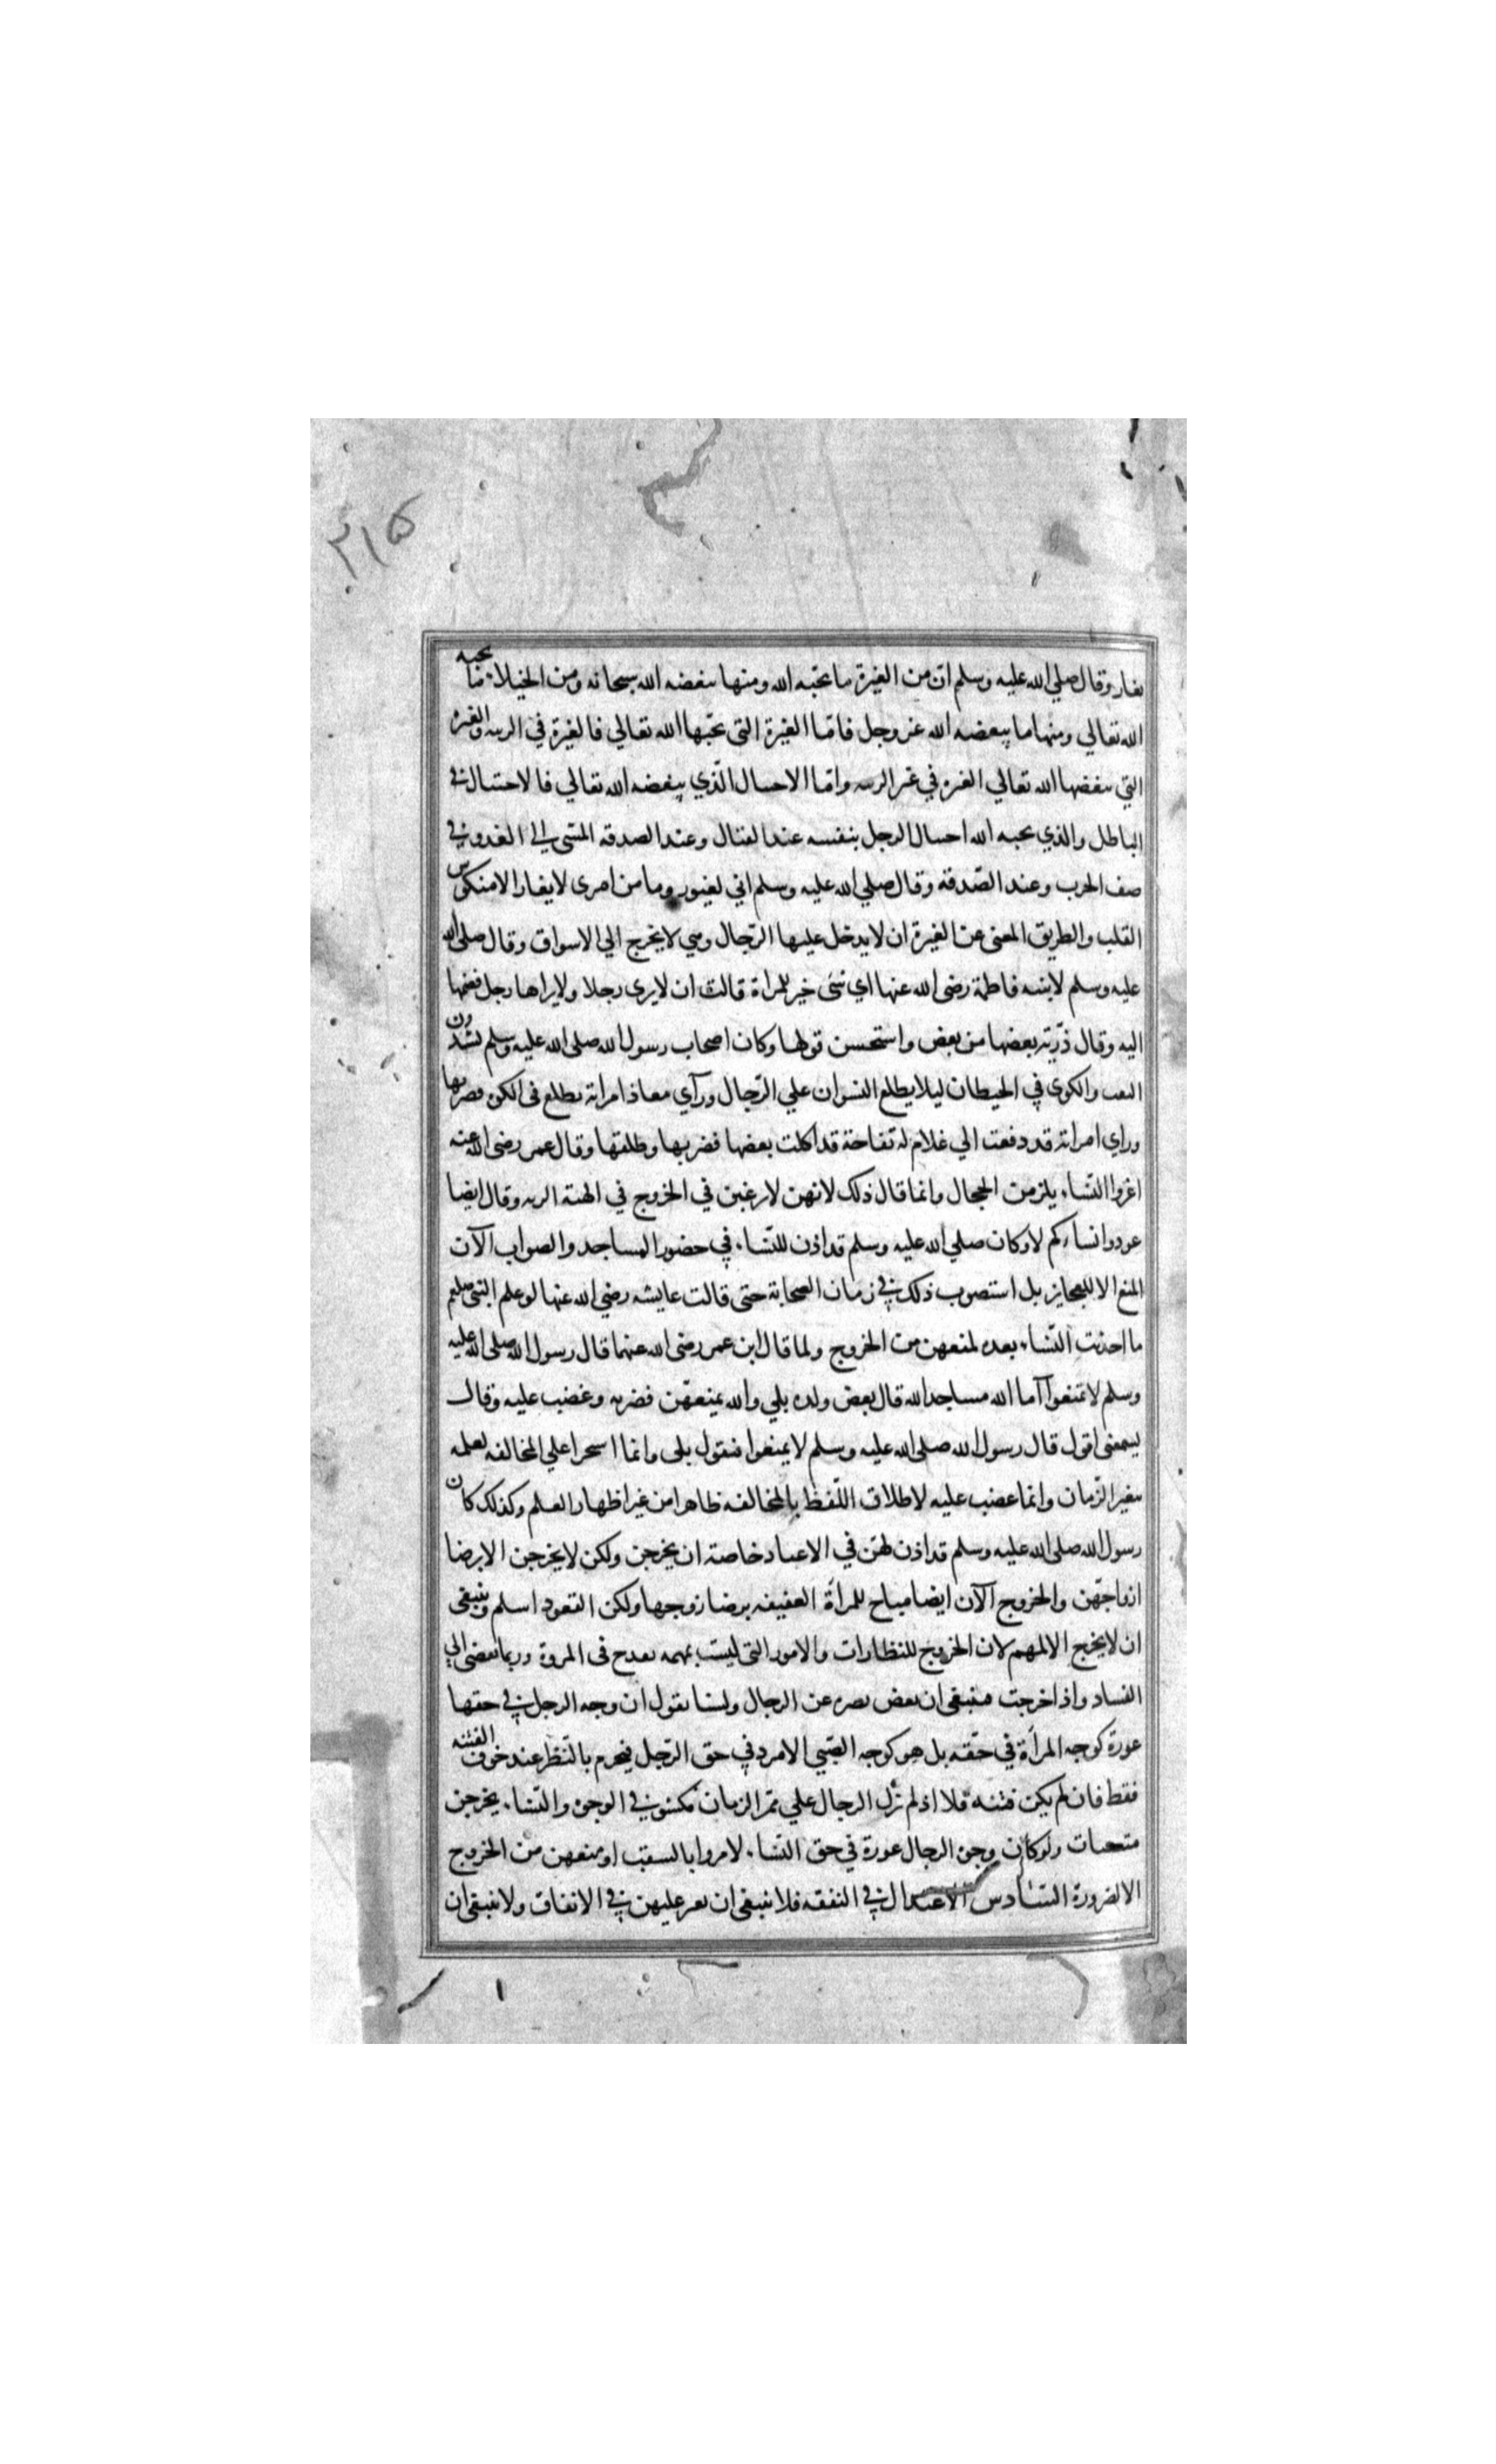 ٣١۵
يغار وقال صلي الله عليه وسلم ان من الغيرة ما يحبه الله ومنها يبغضه الله سبحانه ومن الخيلاء ما يحبه
الله تعالي ومنها ما يبغضه الله عز وجل فاما الغيرة التي يحبها الله تعالي فالغيرة في الريبه والغيرة
التي يبغضها الله تعالي الغيره في غير الريبه واما الاختيال الذي يبغضه الله تعالي فالاختيال في
الباطل والذي يحبه الله اختيال الرجل بنفسه عند القتال وعند الصدقه المشي الي العدو في
صف الحرب وعند الصّدقه وقال صلي الله عليه وسلم اني لغيور وما من امرى لا يغار الا منكوس
القلب والطريق المغنى عن الغيرة ان لا يدخل عليها الرّجال وهي لا يخرج الي الاسواق وقال صلى الله
عليه وسلم لابنته فاطمة رضى الله عنها اي شئ خير للمراة قالت ان لا يرى رجلا ولا يراها رجل فضمها
اليه وقال ذرّية بعضها من بعض واستحسن قولها وكان اصحاب رسول الله صلى الله عليه وسلم يشدون
النقب والكوى في الحيطان ليلا يطلع النسوان علي الرّجال ورآي معاذ امراته يطلع فى الكوه فضربها
وراي امراته قد دفعت الي غلام له تفاحة قد اكلت بعضها فضربها وطلقها وقال عمر رضى الله عنه
اعروا النّساء يلزمن الحجال وانما قال ذلك لانهن لا رغبن في الخروج في الهيئة الرثه وقال ايضا
عودوا نساءكم لا وكان صلي الله عليه وسلم قد اذن للنّساء في حضور المساجد والصواب الآن
المنع الا للعجايز بل استصوب ذلك في زمان الصحابة حتى قالت عايشه رضي الله عنها لو علم النبى صلعم
ما احدثت النّساء بعده لمنعهن من الخروج ولما قال ابن عمر رضى الله عنهما قال رسول الله صلى الله عليه
وسلم لا تمنعوا آما الله مساجد الله قال بعض ولده بلي والله يمنعهّن فضربه وغضب عليه وقال
ليسمعنى اقول قال رسول الله صلى الله عليه وسلم لا يمنعوا فتقول بلى وانما استجرا علي المخالفه لعلمه
بتغير الزّمان وانما غضب عليه لاطلاق اللّفظ بالمخالفه ظاهرا من غير اظهار العلم وكذلك كان
رسول الله صلى الله عليه وسلم قد اذن لهنّ في الاعياد خاصة ان يخرجن ولكن لا يخرجن الا برضا
ازواجهّن والخروج الآن ايضا مباح للمرأة العفيفه برضا زوجها ولكن القعود اسلم وينبغى
ان لا يخرج الا لمهم لان الخروج للنظارات والامور التى ليست بمهمه يقدح فى المروة وربما تفضى الي
الفساد واذا خرجت فينبغى ان يغض بصره عن الرجال ولسنا نقول ان وجه الرجل في حقها
عورة كوجه المرأة في حقّه بل هو كوجه الصّبي الامرد في حق الرّجل فيحرم بالنّظر عند خوف الفتنه
فقط فان لم يكن فتنه فلا اذ لم تزل الرجال علي ممّر الزمان مكشوفي الوجوه والنّساء يخرجن
متنقبات ولو كان وجوه الرجال عورة في حق النّساء لامروا بالتنقب او منعهن من الخروج
الا لضرورة السّادس الاعتدال في النفقه فلا ينبغى ان يقتر عليهن في الانفاق ولا ينبغى ان